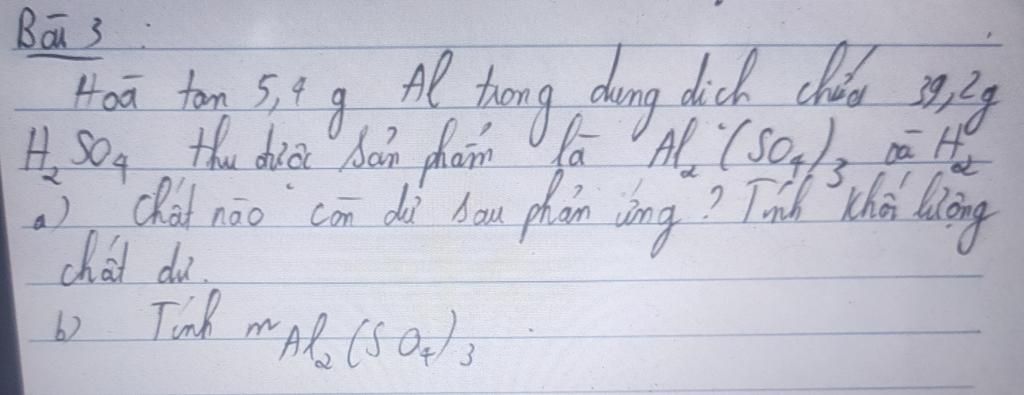 Bài 3 :
Hoà tan 5,4 g Al trong dung dịch chứa 39,2g
H₂SO₄ thu được sản phẩm là Al₂(SO₄)₃ và H₂
a) Chất nào còn dư sau phản ứng? Tính khối lượng
chất dư.
b) Tính m Al₂(SO₄)₃.